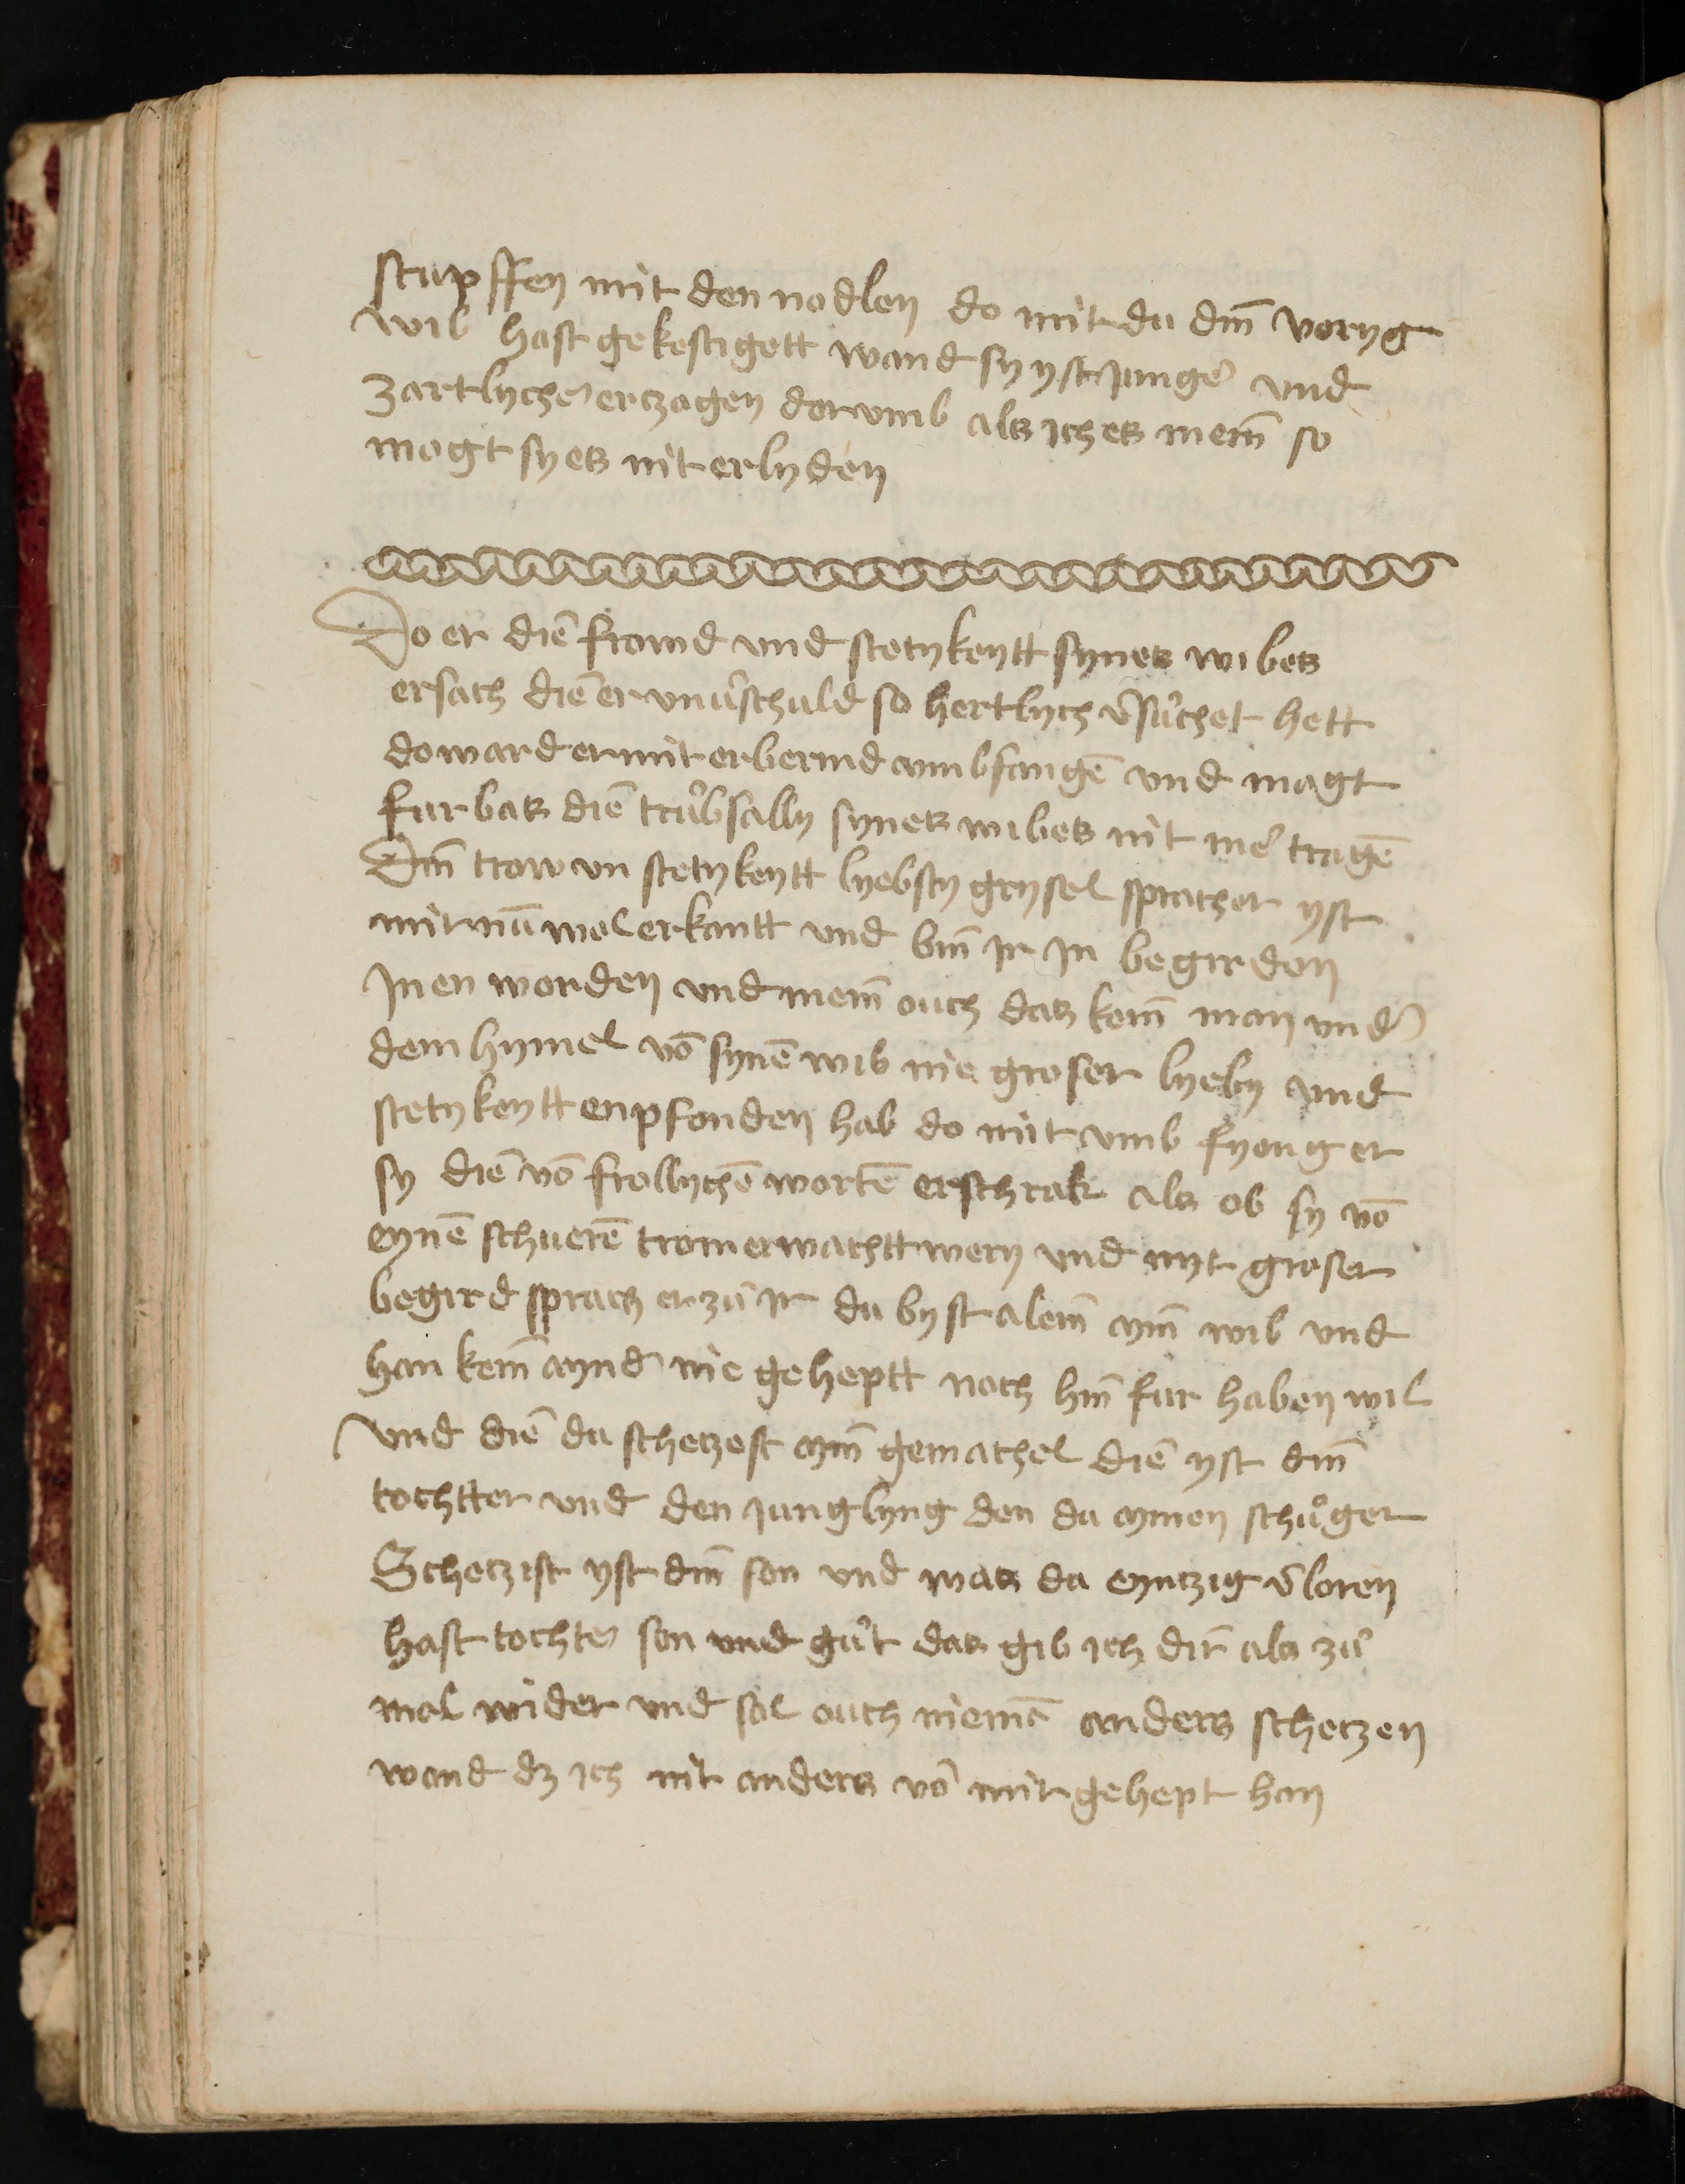 stupffen mit den nodlen do mit du din̄ voryg
wib hast gekestigett wand sy yst Junger̄ vnd
zartlycher̄ erzogen dorvmb als ich es mein̄ so
mogt sy es nit erlyden
Do er die frowd vnd stetykeytt synes wibes
ersach die er vnu̇schuld so hertlych v̄sůchet hett
do ward er mit erbermd vmbfangē vnd magt
furbas die trůbsally synes wibes nit mer̄ tragē
Din̄ trow vn stetykeytt lyebsty grysel sprach er yst
mir nū wol erkantt vnd bin̄ Ir In begirden
Inen worden vnd mein̄ ouch das kein̄ man vnd̄
dem hymel vō synē wib nie groser lyeby vnd
stetykeytt enpfonden hab do mit vmb fyeng er
sy die vō frollychē wortē erschrak als ob sy vō
eynē schuerē trom erwachtt wery vnd myt groser
begird sprach er zů Ir du byst alein̄ myn̄ wib vnd
han kein̄ aynd̄ nie geheptt noch hin̄ fur haben wil
vnd die du schetzest myn̄ gemachel die yst din̄
tochtter vnd den Junglyng den du mynen schůger
Schetzist yst din̄ son vnd was du eyntzig v̄loren
hast tochter̄ son vnd gůt das gib ich dir als zů
mol wider vnd sol ouch niemā anders schetzen
wand dz ich nit anders vō mir gehept han